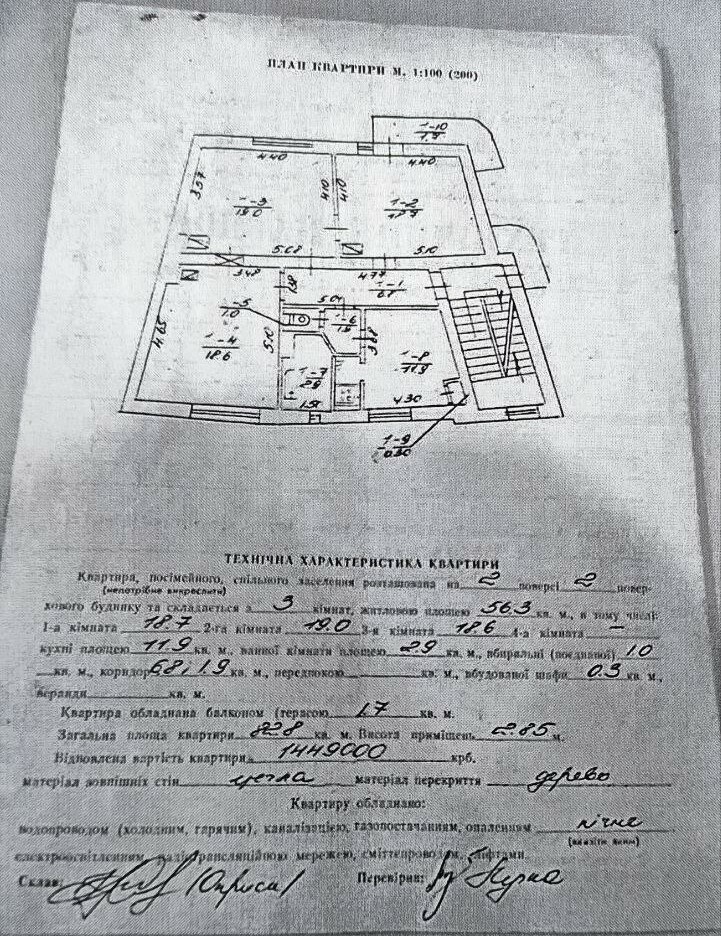 ПЛАН КВАРТИРИ М. 1:100 (200)
1-10
1,7
4.40
4.40
3.57
4.10
4.10
1-3
19.0
1-2
18.7
5.08
5.10
3.48
4.77
1-1
6.8
1-5
1.0
5.04
1-6
1.9
4.65
1-4
18.6
5.10
3.68
1-7
2.9
1-8
11.9
4.30
1-9
0.30
ТЕХНІЧНА ХАРАКТЕРИСТИКА КВАРТИРИ
Квартира, посімейного, спільного заселення розташована на 2 поверсі 2 повер-
(непотрібне викреслити)
хового будинку та складається з 3 кімнат, житловою площею 56.3 кв. м., в тому числі:
1-а кімната 18.7 2-га кімната 19.0 3-я кімната 18.6 4-а кімната —
кухні площею 11.9 кв. м., ванної кімнати площею 2.9 кв. м., вбиральні (поєднаної) 1.0
кв. м., коридор 6.8; 1.9 кв. м., передпокою кв. м., вбудованої шафи 0.3 кв. м.,
веранди кв. м.
Квартира обладнана балконом (терасою 1.7 кв. м.
Загальна площа квартири 82.8 кв. м. Висота приміщень 2.85 м.
Відновлена вартість квартири 1449000 крб.
матеріал зовнішніх стін цегла матеріал перекриття дерево
Квартиру обладнано:
водопроводом (холодним, гарячим), каналізацією, газопостачанням, опаленням пічне
(вказати яким)
електроосвітленням, радіотрансляційною мережею, сміттепроводом, ліфтами.
Склав: Перевірив: